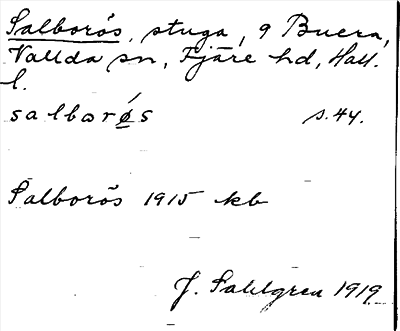 Salborös, stuga, 9 Buera,
Vallda sn, Fjäre hd, Hall.
l.
salbarǿs s.44.
Salborös 1915 kb
J. Sahlgren 1919